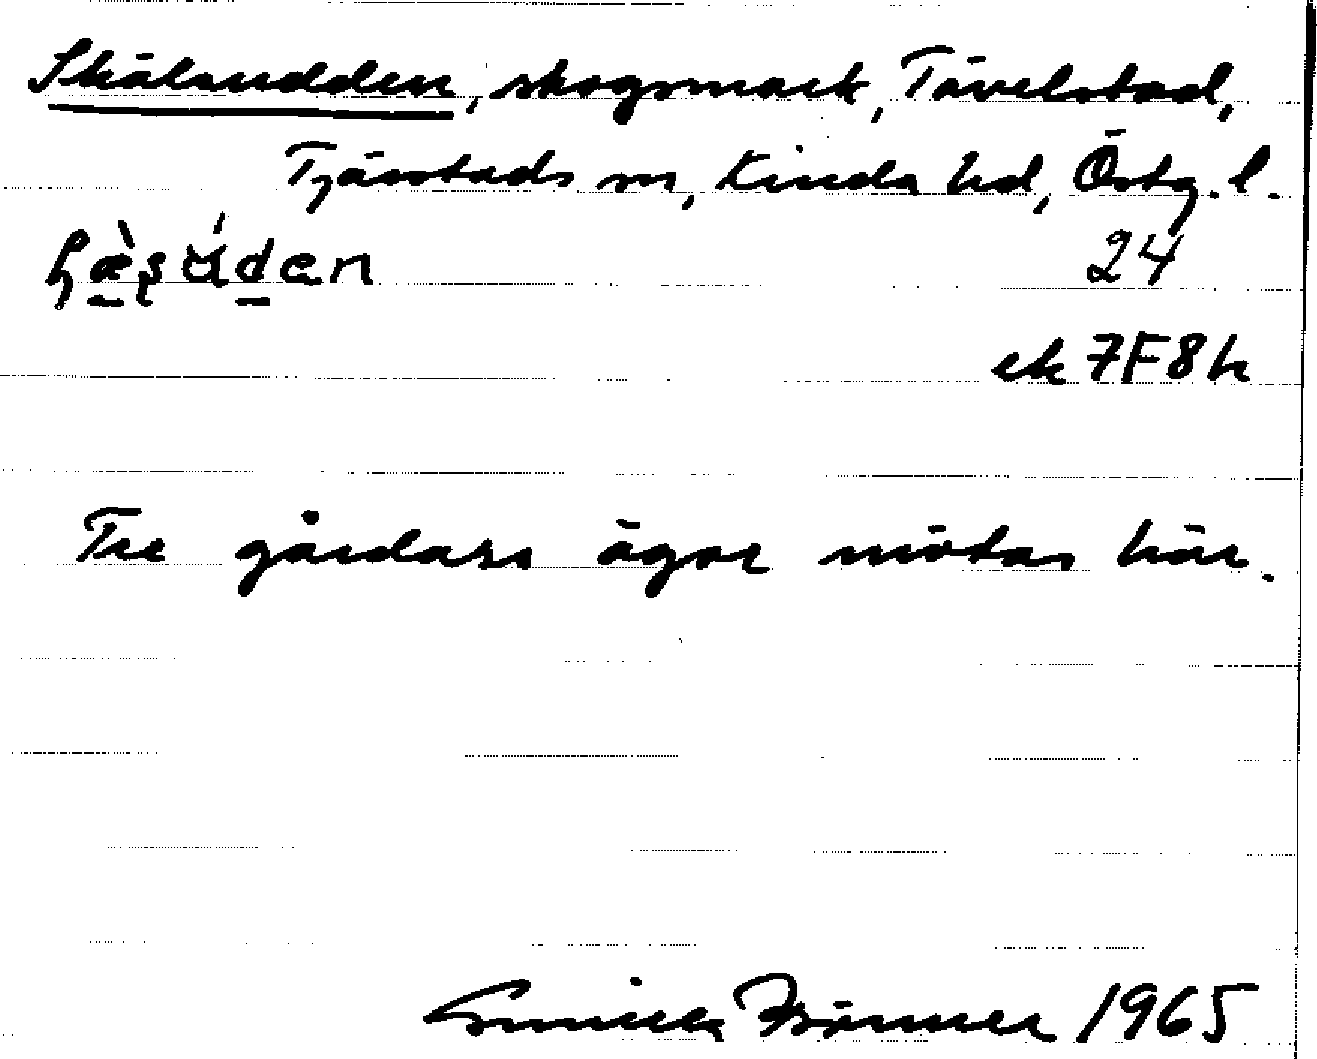 Skälsudden, skogsmark, Tävelstad,
Tjärstads sn, Kinda hd, Östg. l.
24
ek 7F8h
Tre gårdars ägor mötas här.
Gunilla Bränner 1965